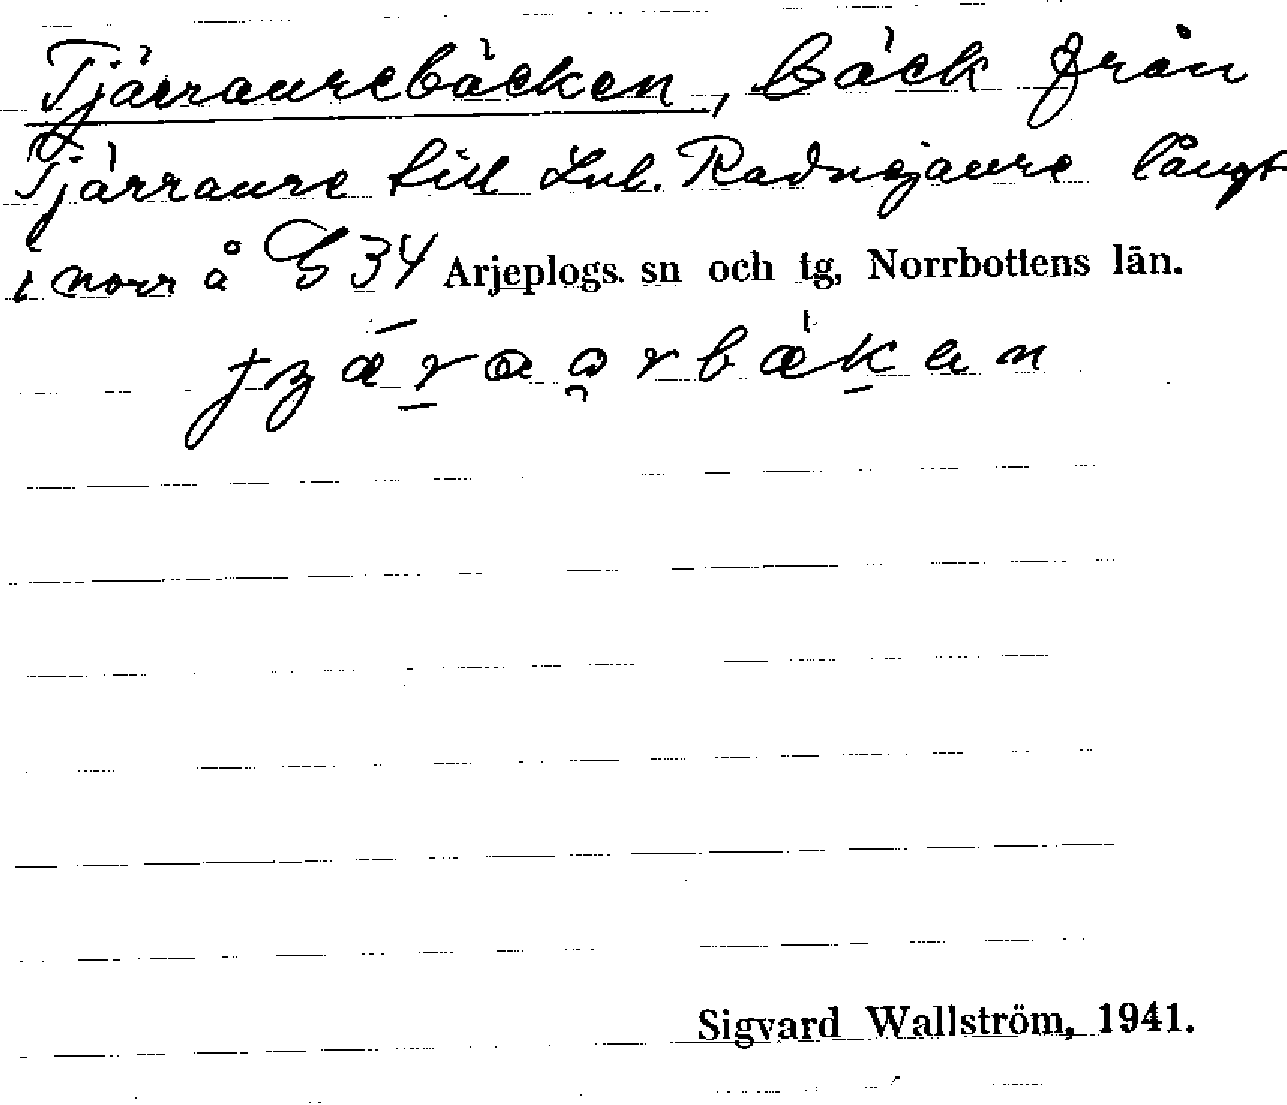 Tjärraurebäcken, Bäck från
Tjärraure till Lul. Radnejaure långt
i norr å G 34 Arjeplogs. sn och tg, Norrbottens län.
Sigvard Wallström, 1941.